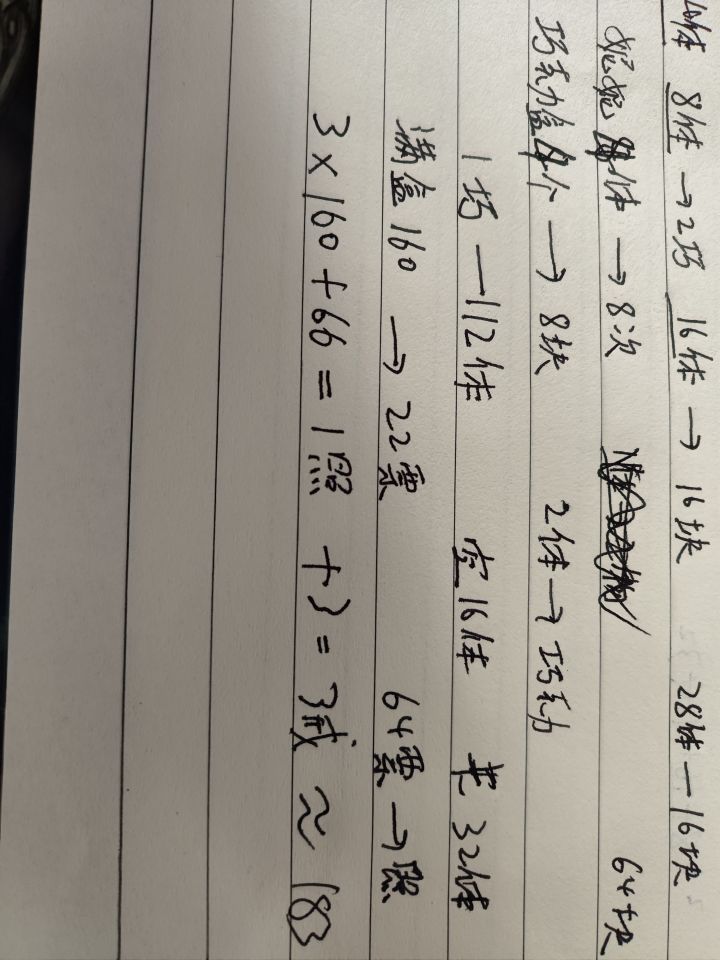 8体 → 2巧 16体 → 16块 28体 — 16块
妮妮 体 → 8次 64块
巧克力盒 个 → 8块 2体 → 巧克力
1巧 — 112体 空16体 半32体
满盒160 → 22票 64票 → 照
3×160+66=1照 +3=3戒 ≈ 183